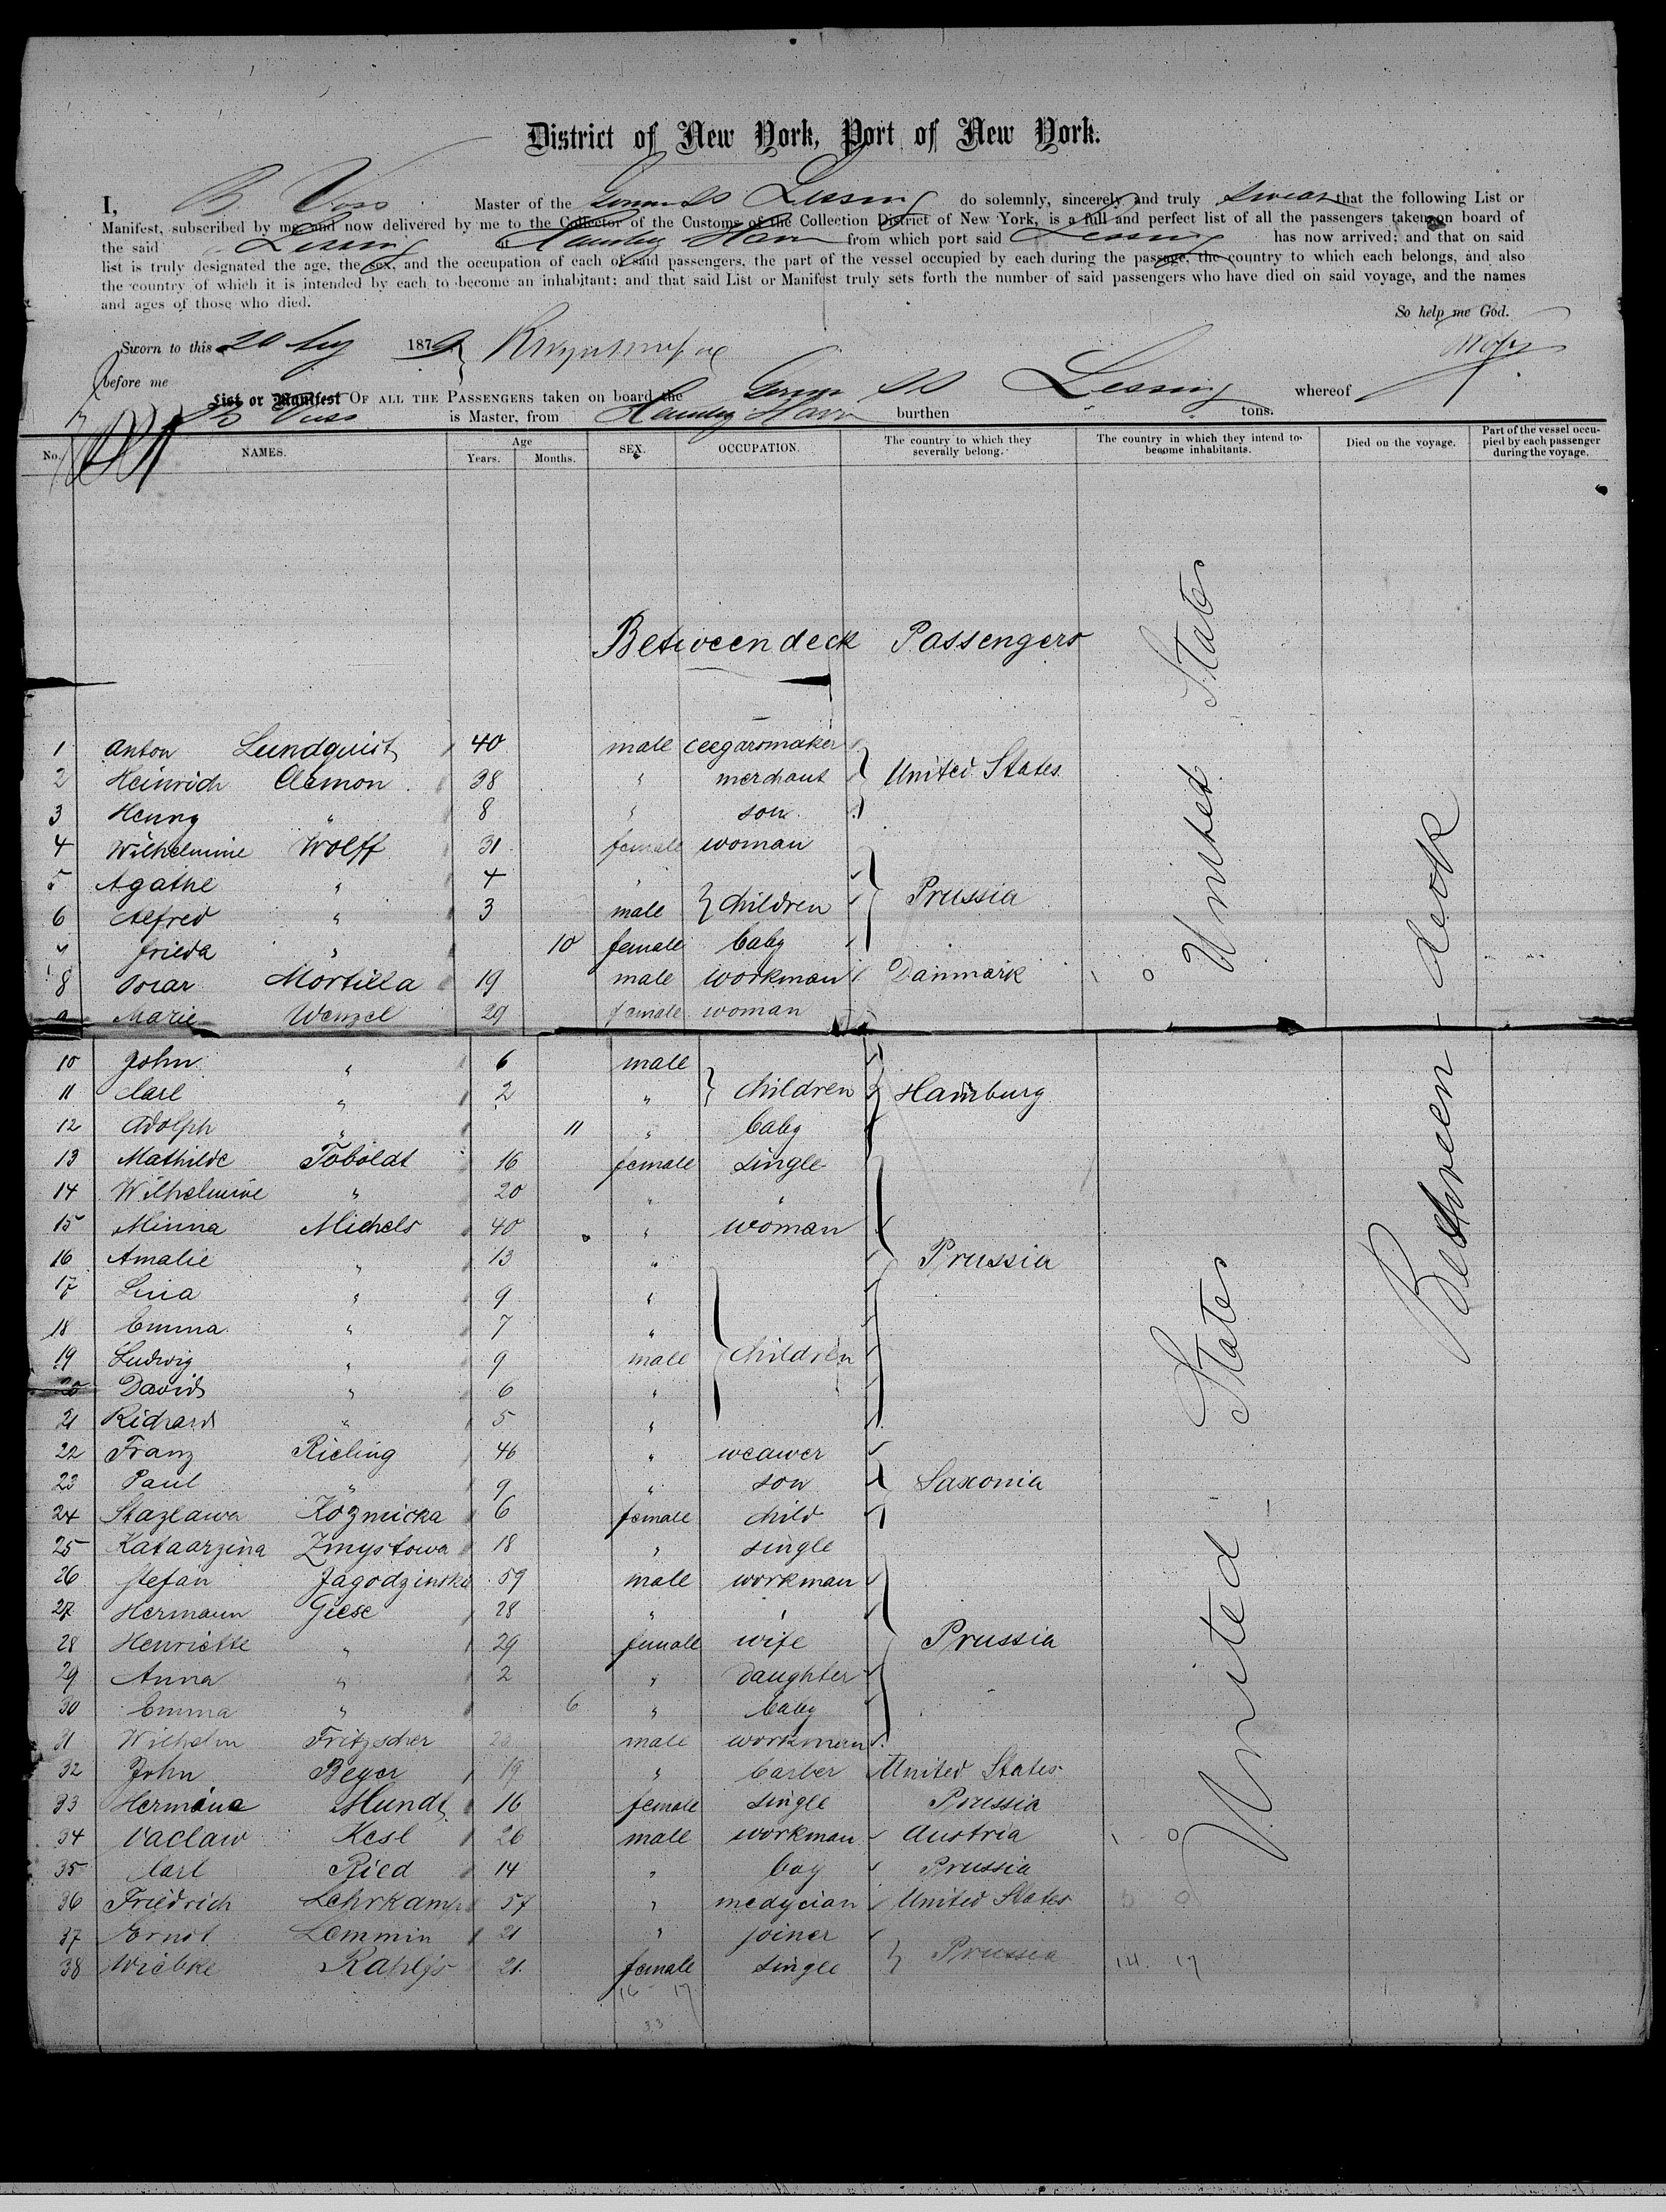 District of New York, Port of New York.
I, B. Voss Master of the German SS Lessing do solemnly, sincerely and truly swear that the following List or
Manifest, subscribed by me, and now delivered by me to the Collector of the Customs of the Collection District of New York, is a full and perfect list of all the passengers taken on board of
the said Lessing at Hamburg Havre from which port said Lessing has now arrived; and that on said
list is truly designated the age, the sex, and the occupation of each of said passengers, the part of the vessel occupied by each during the passage, the country to which each belongs, and also
the country of which it is intended by each to become an inhabitant; and that said List or Manifest truly sets forth the number of said passengers who have died on said voyage, and the names
and ages of those who died.
So help me God.
Sworn to this 20 Aug 1879
before me
List or Manifest OF ALL THE PASSENGERS taken on board the German SS Lessing whereof
B Voss is Master, from Hamburg Havre burthen tons.
No. NAMES. Age Years. Months. SEX. OCCUPATION. The country to which they severally belong. The country in which they intend to become inhabitants. Died on the voyage. Part of the vessel occupied by each passenger during the voyage.
Between deck Passengers
1 Anton Lundquist 40 male ceegarsmaker
2 Heinrich Clemon 38 " merchant United States
3 Henny " 8 " son
4 Wilhelmine Wolff 31 female woman
5 Agathe " 4 "
6 Alfred " 3 male children Prussia
7 frieda " 10 female baby
8 Oscar Mortilla 19 male workman Danmark 1 0
9 Marie Wenzel 29 female woman
10 John " 6 male
11 Carl " 2 " children Hamburg
12 Adolph " 11 " baby
13 Mathilde Toboldt 16 female single
14 Wilhelmine " 20 " "
15 Minna Michels 40 " woman
16 Amalie " 13 " Prussia
17 Lina " 9 "
18 Emma " 7 "
19 Ludwig " 9 male children
20 David " 6 "
21 Richard " 5 "
22 Franz Rieling 46 " weawer
23 Paul " 9 " son Saxonia
24 Stazlawa Kozmicka 6 female child
25 Kataarzina Zmystowa 18 " single
26 Stefan Jagodzinski 59 male workman
27 Hermann Giese 28 " "
28 Henriette " 29 female wife Prussia
29 Anna " 2 " daughter
30 Emma " 6 " baby
31 Wilhelm Fritzscher 23 male workman
32 John Beyer 19 " barber United States
33 Hermine Mundt 16 female single Prussia
34 Vaclaw Kesl 26 male workman Austria 1 0
35 Carl Ried 14 " boy Prussia
36 Friedrich Lehrkamp 57 " medycian United States 0
37 Ernst Lemmin 21 " joiner
38 Wiebke Rahlfs 21 female single Prussia 14 17
16 17
33
United States
United States
Between deck